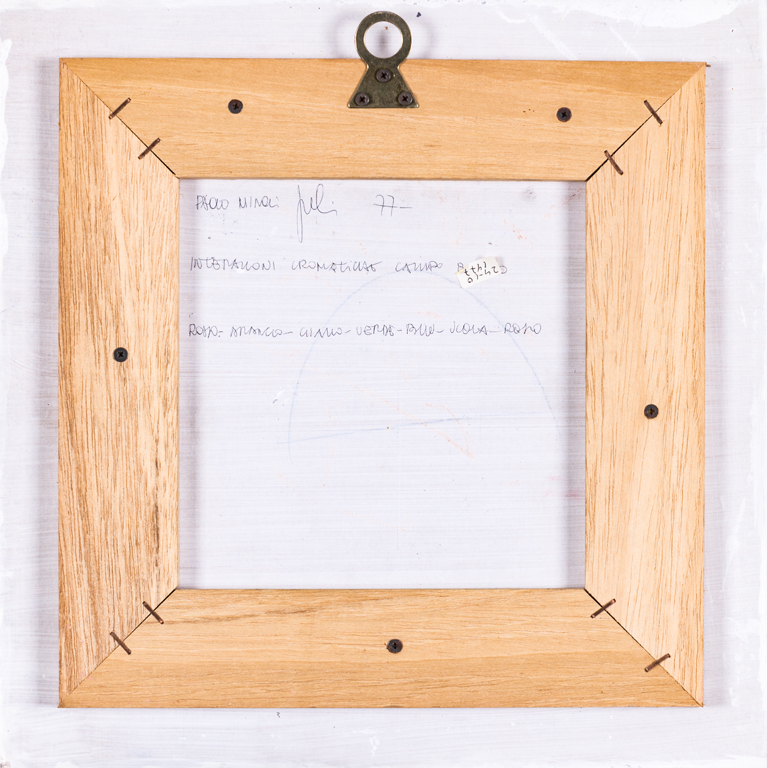 PAOLO MINOLI 77-
INTERAZIONI CROMATICHE CAMPO B
ROSSO-ARANCIO-GIALLO-VERDE-BLU-VIOLA-ROSSO